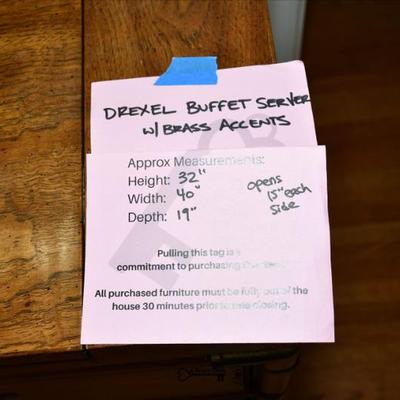 DREXEL BUFFET SERVER
W/ BRASS ACCENTS
Approx Measurements:
Height: 32"
Width: 40"
Depth: 19"
opens
15" each
side
Pulling this tag is a
commitment to purchasing
All purchased furniture must be fully out of the
house 30 minutes prior to sale closing.